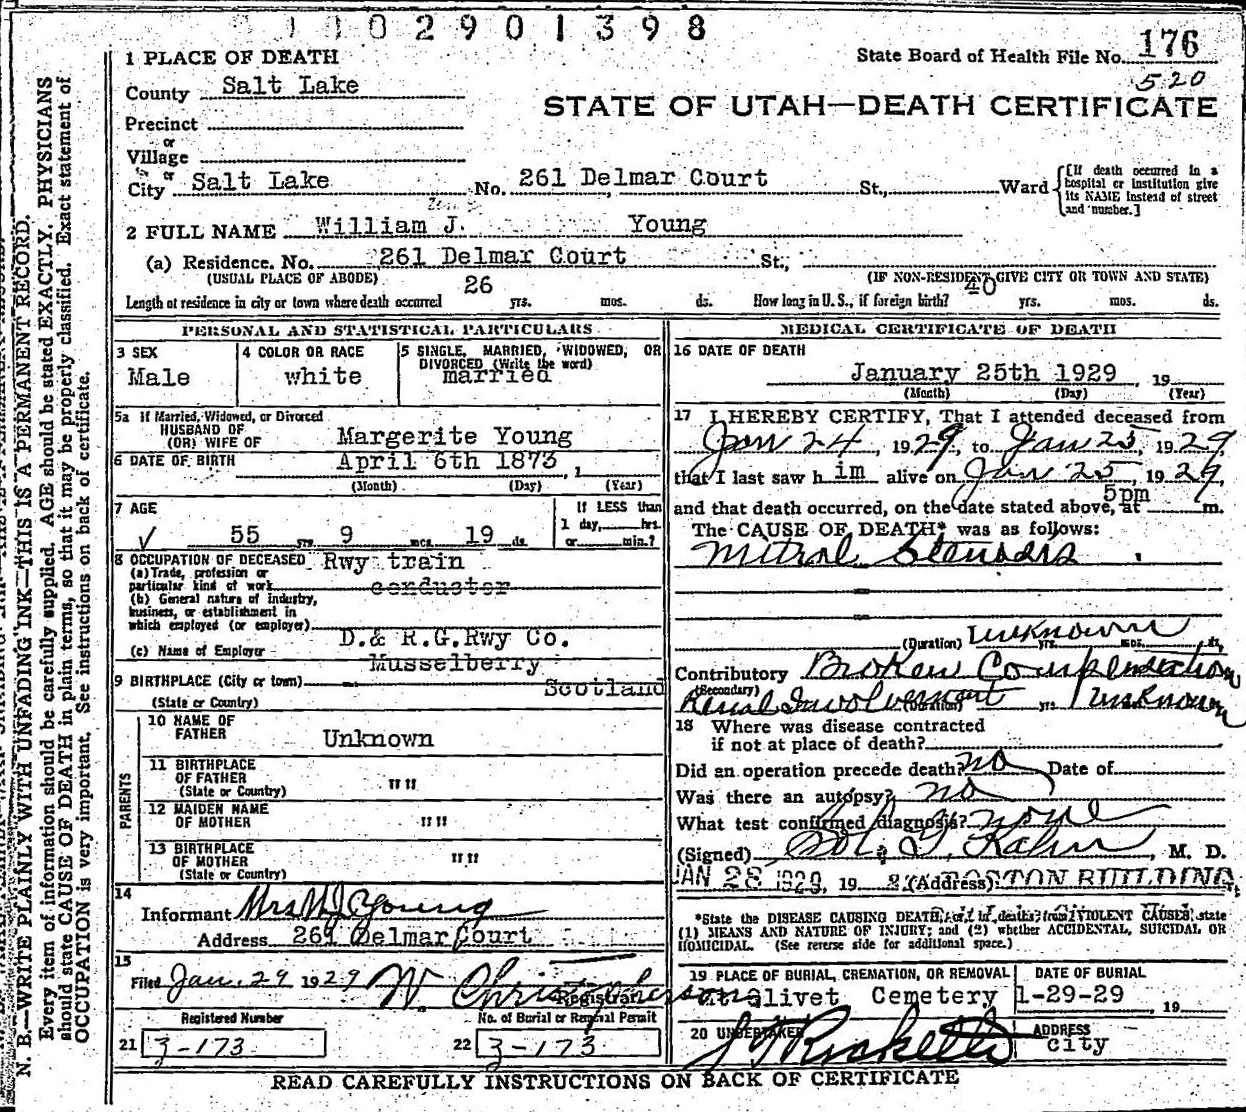 02901398
1 PLACE OF DEATH
State Board of Health File No. 176
520
County Salt Lake
STATE OF UTAH—DEATH CERTIFICATE
Precinct
or
Village
or
City Salt Lake No. 261 Delmar Court St., Ward
[If death occurred in a hospital or institution give its NAME instead of street and number.]
2 FULL NAME William J. Young
(a) Residence. No. 261 Delmar Court St.,
(USUAL PLACE OF ABODE) (IF NON-RESIDENT GIVE CITY OR TOWN AND STATE)
Length of residence in city or town where death occurred 26 yrs. mos. ds. How long in U. S., if foreign birth? 40 yrs. mos. ds.
PERSONAL AND STATISTICAL PARTICULARS
3 SEX
Male
4 COLOR OR RACE
white
5 SINGLE, MARRIED, WIDOWED, OR
DIVORCED (Write the word)
married
5a If Married, Widowed, or Divorced
HUSBAND OF
(OR) WIFE OF Margerite Young
6 DATE OF BIRTH April 6th 1873
(Month) (Day) (Year)
7 AGE
55 yrs. 9 mos. 19 ds.
If LESS than
1 day, hrs.
or min.?
8 OCCUPATION OF DECEASED Rwy train
(a) Trade, profession or
particular kind of work conductor
(b) General nature of industry,
business, or establishment in
which employed (or employer)
(c) Name of Employer D.& R.G.Rwy Co.
Musselberry
9 BIRTHPLACE (City or town)
Scotland
(State or Country)
PARENTS
10 NAME OF
FATHER Unknown
11 BIRTHPLACE
OF FATHER " "
(State or Country)
12 MAIDEN NAME
OF MOTHER " "
13 BIRTHPLACE
OF MOTHER " "
(State or Country)
14
Informant Mrs W J Young
Address 261 Delmar Court
15
Filed Jan. 29 1929 W. Christopherson
Registrar
Registered Number
21 3-173
No. of Burial or Removal Permit
22 3-173
MEDICAL CERTIFICATE OF DEATH
16 DATE OF DEATH
January 25th 1929, 19
(Month) (Day) (Year)
17 I HEREBY CERTIFY, That I attended deceased from
Jan 24, 1929, to Jan 25, 1929
that I last saw him alive on Jan 25, 1929,
and that death occurred, on the date stated above, at 5pm m.
The CAUSE OF DEATH* was as follows:
Mitral Stenosis
(Duration) Unknown yrs. mos. ds.
Contributory Broken Compensation
(Secondary)
Renal Involvement (Duration) yrs. Unknown
18 Where was disease contracted
if not at place of death?
Did an operation precede death? no Date of
Was there an autopsy? no
What test confirmed diagnosis? none
(Signed) Sol. G. Kahn, M. D.
JAN 28 1929, 19 (Address) BOSTON BUILDING
*State the DISEASE CAUSING DEATH, or, in deaths from VIOLENT CAUSES, state
(1) MEANS AND NATURE OF INJURY; and (2) whether ACCIDENTAL, SUICIDAL OR
HOMICIDAL. (See reverse side for additional space.)
19 PLACE OF BURIAL, CREMATION, OR REMOVAL
Mt Olivet Cemetery
DATE OF BURIAL
1-29-29, 19
20 UNDERTAKER
ADDRESS
city
READ CAREFULLY INSTRUCTIONS ON BACK OF CERTIFICATE
N. B.—WRITE PLAINLY WITH UNFADING INK—THIS IS A PERMANENT RECORD.
Every item of information should be carefully supplied. AGE should be stated EXACTLY. PHYSICIANS
should state CAUSE OF DEATH in plain terms, so that it may be properly classified. Exact statement of
OCCUPATION is very important. See instructions on back of certificate.